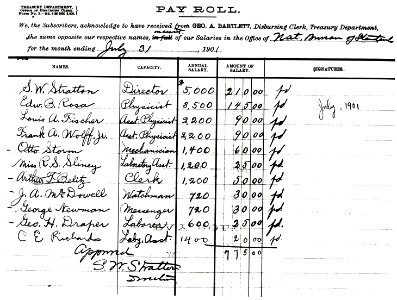 PAY ROLL.
TREASURY DEPARTMENT,
We, the Subscribers, acknowledge to have received from GEO. A. BARTLETT, Disbursing Clerk, Treasury Department,
the sums opposite our respective names, in of our Salaries in the Office of Nat. Bureau of
for the month ending July 31, 1901.
NAMES. CAPACITY. ANNUAL SALARY. AMOUNT OF SALARY. (SIGNATURES.
S. W. Stratton Director $5,000 210 00 pd
Edw. B. Rosa Physicist 3,500 145 00 pd July, 1901
Louis A. Fischer Asst. Physicist 2,200 90 00 pd
Frank A. Wolff, Jr. Asst. Physicist 2,200 90 00 pd.
- Otto Storm Mechanician 1,400 60 00 pd
- Miss R. S. Sliney Laboratory Asst. 1,200 25 00 pd
- Arthur F. Beitz Clerk 1,200 50 00 pd
- J. A. McDowell Watchman 720 30 00 pd
- George Newman Messenger 720 30 00 pd
- Geo. H. Draper Laborer 600 25 00 pd.
C E Richards Lab. Asst 1400 20 00 pd.
Approved 775 00
S. W. Stratton
Director